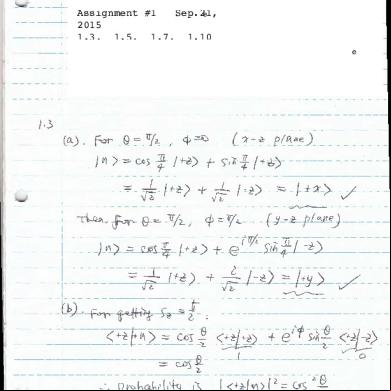 Assignment #1 Sep.21,
2015
1.3. 1.5. 1.7. 1.10
1.3
(a). For θ = π/2, φ=0 (x-z plane)
|n> = cos π/4 |+z> + sin π/4 |-z>
= 1/√2 |+z> + 1/√2 |-z> = |+x> ✓
Then for θ = π/2, φ = π/2 (y-z plane)
|n> = cos π/4 |+z> + e^{iπ/2} sin π/4 |-z>
= 1/√2 |+z> + i/√2 |-z> = |+y> ✓
(b). For getting Sz = ħ/2 :
<+z|+n> = cos θ/2 <+z|+z> + e^{iφ} sin θ/2 <+z|-z>
1 0
= cos θ/2
∴ probability is |<+z|n>|² = cos² θ/2